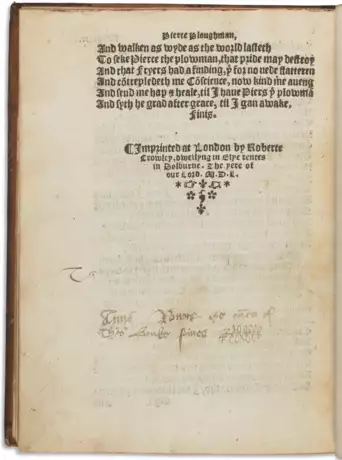 Pierce Ploughman,
And walken as wyde as the world lasteth
To seke Pierce the plowman, that pride may destroy
And that Fryers had a finding, ẏ for no nede flatteren
And cōtrepledeth me Cōscience, now kind me aueng
And send me hap & heale, til I haue Piers ẏ plowmā
And syth he grad after grace, til I gan awake.
Finis.
¶Imprinted at London by Roberte
Crowley, dwellyng in Elye rentes
in Holburne. The yere of
our Lord. M.D.L.
Anne
this booke